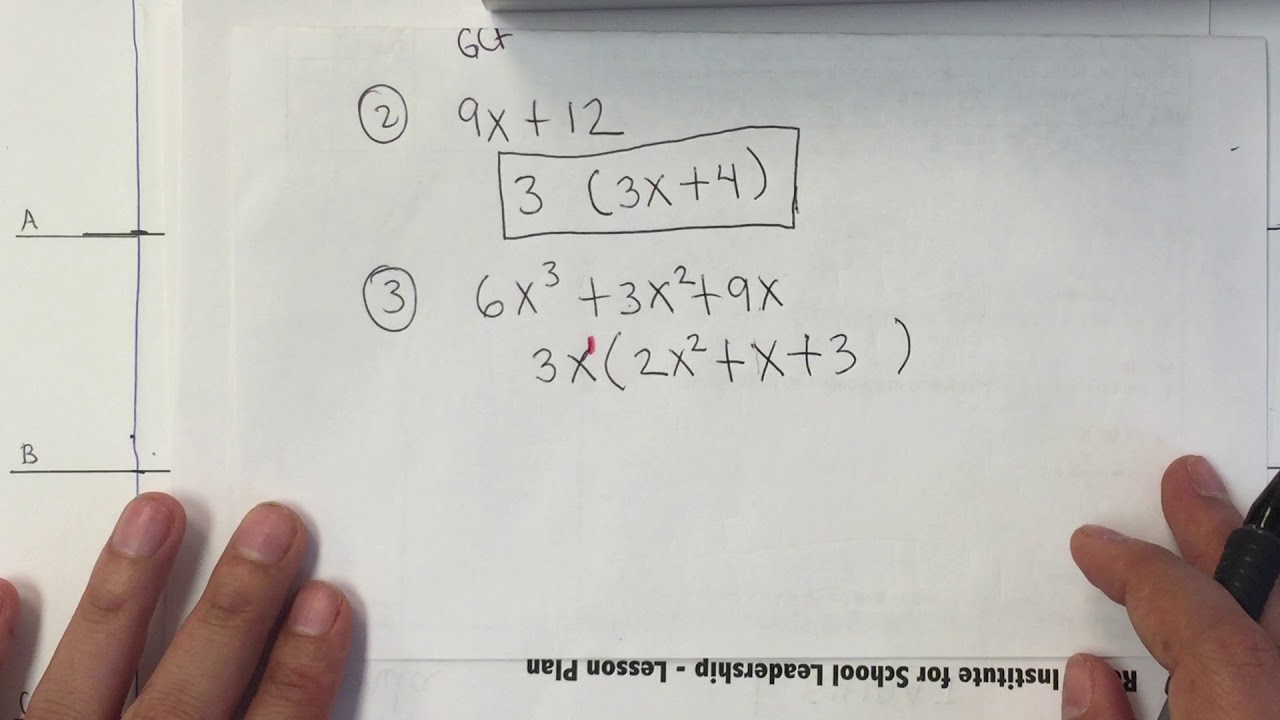 GCF
② 9x + 12
3 (3x + 4)
③ 6x³ + 3x² + 9x
3x(2x² + x + 3 )
A
B
Institute for School Leadership - Lesson Plan